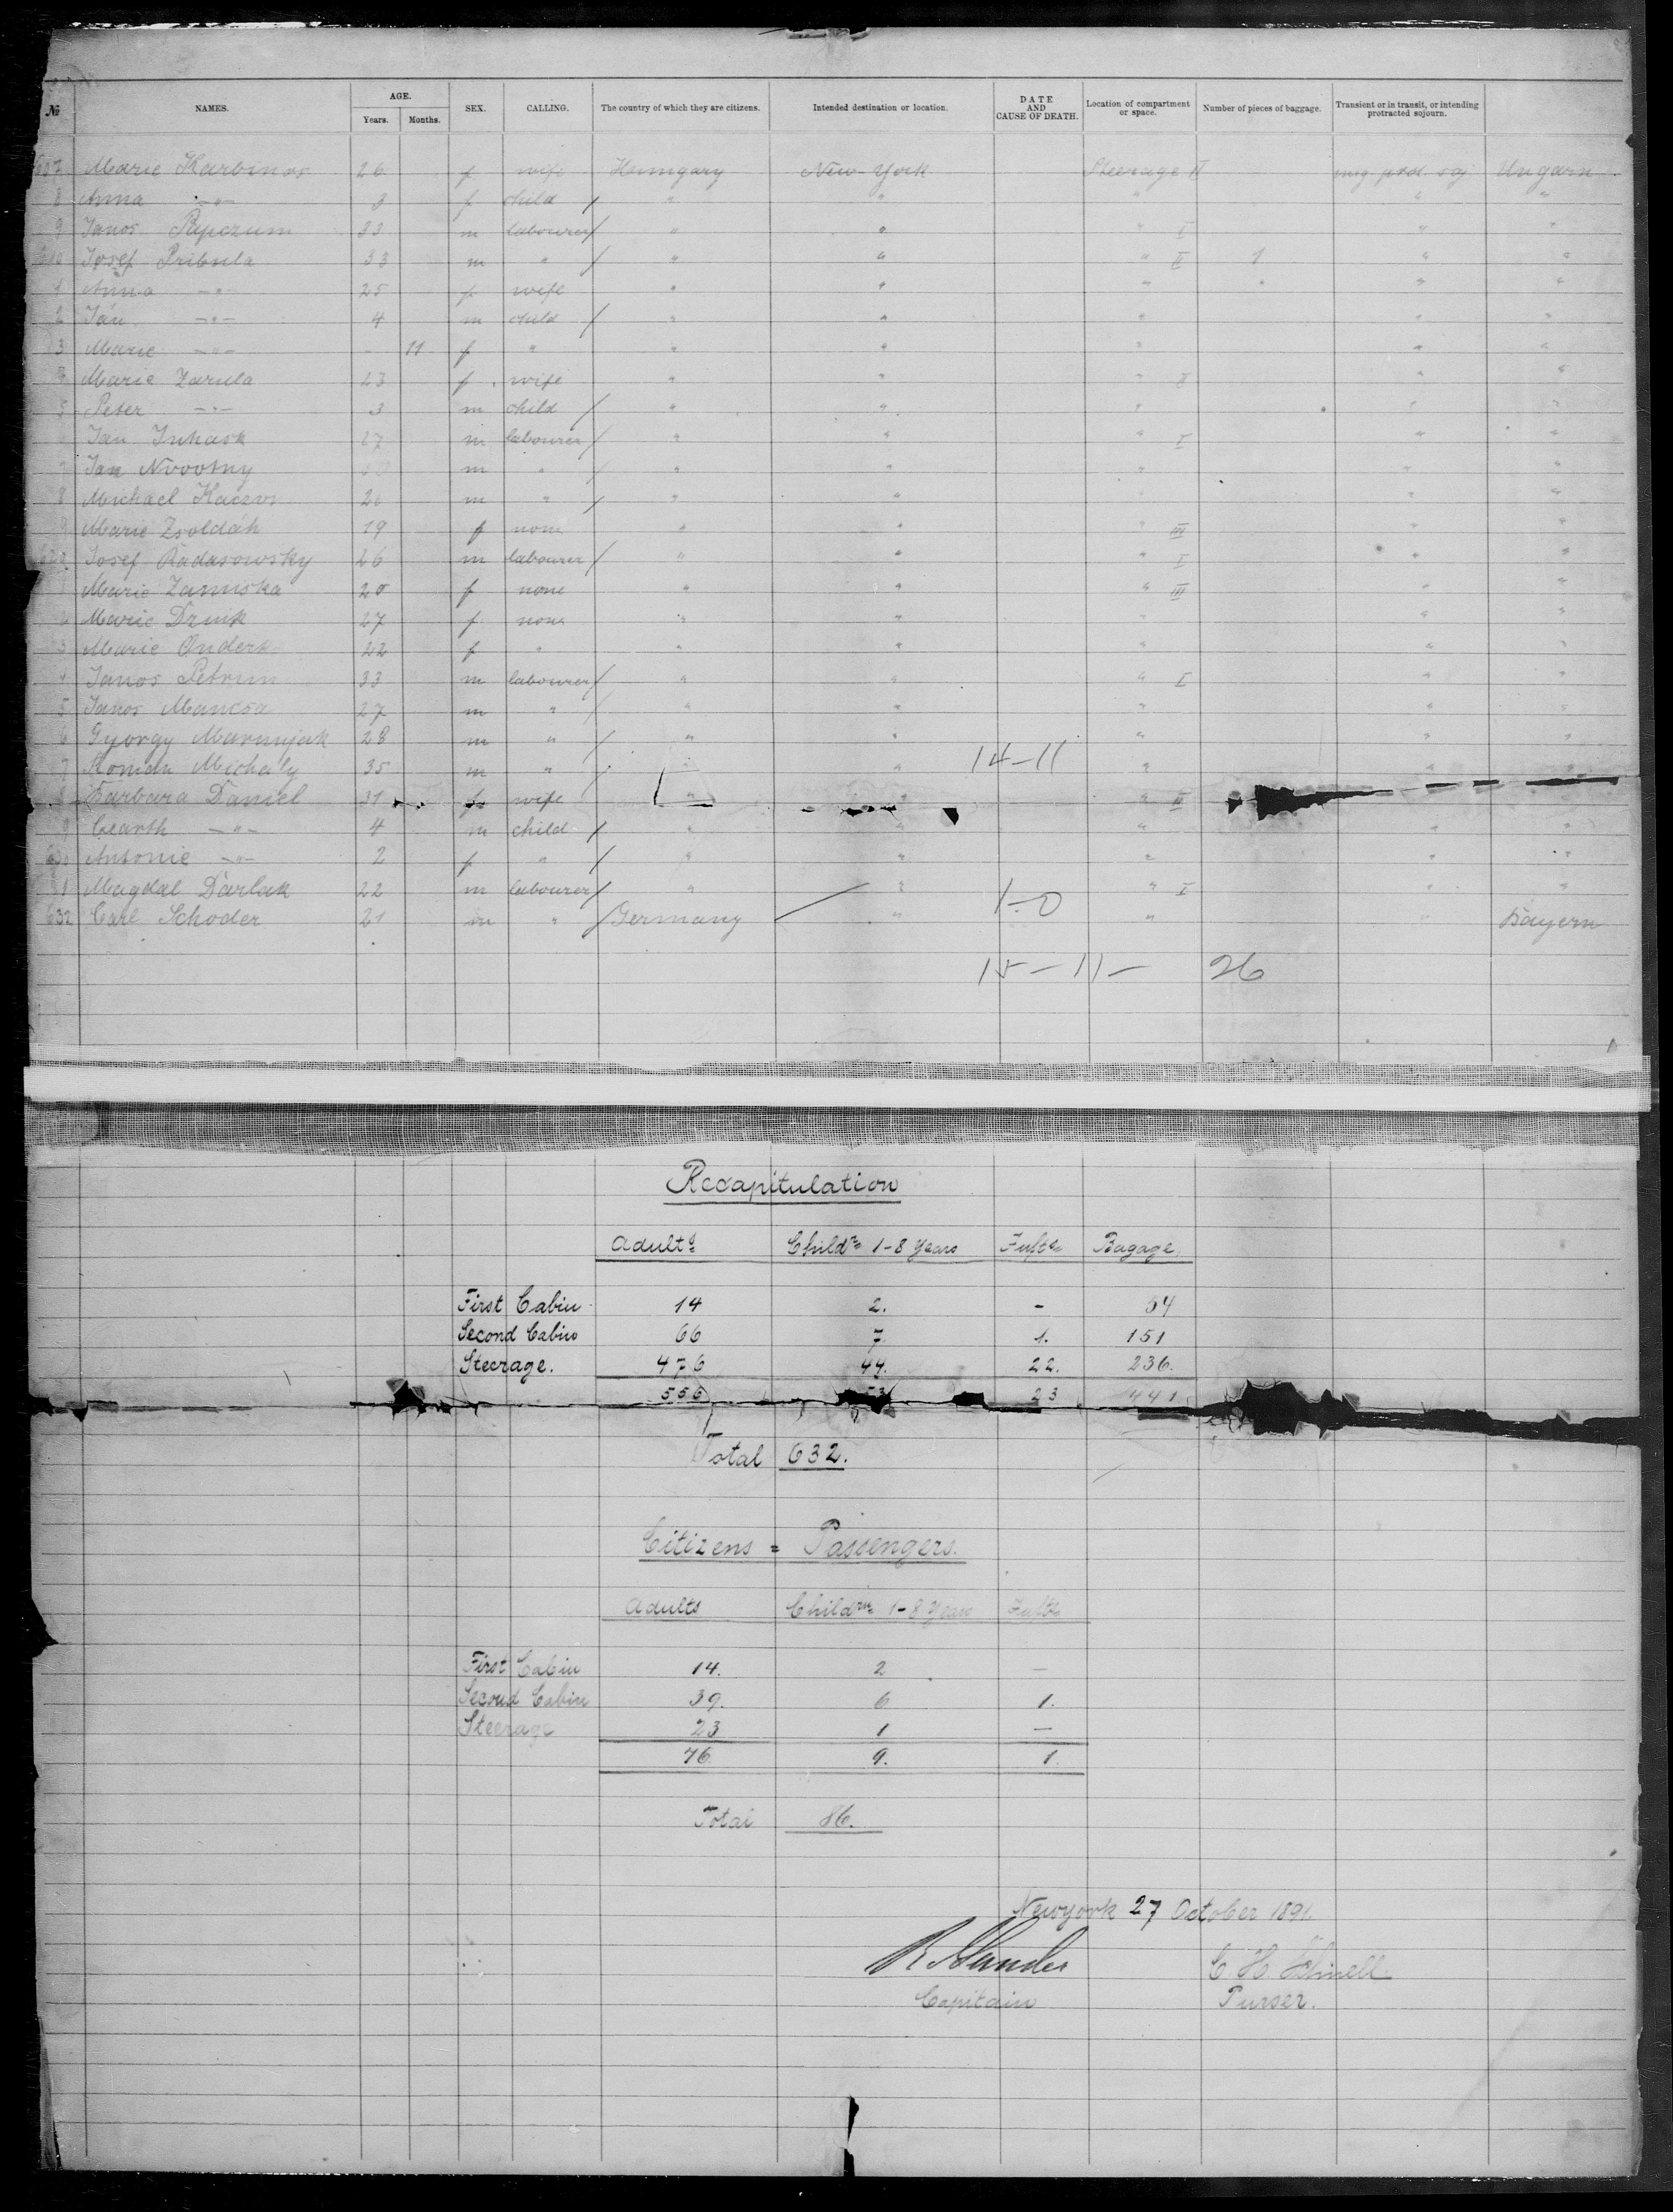 № NAMES. AGE. Years. Months. SEX. CALLING. The country of which they are citizens. Intended destination or location. DATE AND CAUSE OF DEATH. Location of compartment or space. Number of pieces of baggage. Transient or in transit, or intending protracted sojourn.
607 Marie Skarbinas 26 f wife Hungary New-York Steerage II prot. soj. Ungarn
8 Anna -"- 3 f child / " " " " "
9 Janos 33 m labourer / " " " I " "
610 Josef Pribula 33 m " / " " " II 1 " "
1 Anna -"- 25 f wife " " " " " "
2 Ján -"- 4 m child / " " " " "
3 Marie -"- - 11 f " " " " " "
4 Marie Zarula 23 f. wife " " " II " "
5 Peter -"- 3 m child / " " " " "
6 Ján Juhask 27 m labourer / " " " I " "
7 Jan Novotny m " / " " " " "
8 Michael 26 m " / " " " " "
9 Marie Zsoldák 19 f none " " " III " "
620 Josef Radasowsky 26 m labourer / " " " I " "
1 Marie Zamiska 20 f none " " " III " "
2 Marie Dzurik 27 f none " " " " "
3 Marie Onderk 22 f " " " " " "
4 Janos Petrun 33 m labourer / " " " I " "
5 Janos Mancsa 27 m " / " " " " "
6 Gyorgy 28 m " / " " " " "
7 Roman Michaly 35 m " / " " 14-11 " " "
8 Barbara Daniel 31 f wife " " " II
9 -"- 4 m child / " " " " "
630 Antonie -"- 2 f " / " " " " "
31 Magdal Darlak 22 m labourer / " " " I " "
632 Carl Schoder 21 m " / Germany " 1-0 " " Bayern
15-11- 26
Recapitulation
Adults Childrn 1-8 Years Inf<sup></sup>ts Bagage.
First Cabin 14 2. - 54
Second Cabin 66 7. 1. 151
Steerage. 476 44. 22. 236.
556 53 23 441
Total 632.
Citizens = Passengers.
Adults Childrn 1-8 Years Infts
First Cabin 14. 2 -
Second Cabin 39. 6 1.
Steerage 23 1 -
76 9. 1.
Total 86.
Newyork 27 October 1891
R Sander C. H.
Capitain Purser.